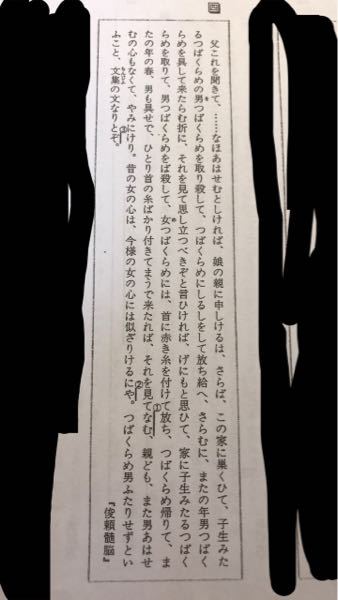 国
父これを聞きて、……なほあはせむとしければ、娘の親に申しけるは、さらば、この家に巣くひて、子生みた
るつばくらめの男つばくらめを取り殺して、つばくらめにしるしをして放ち給へ、さらむに、またの年男つばく
らめを具して来たらむ折に、それを見て思し立つべきぞと言ひければ、げにもと思ひて、家に子生みたるつばく
らめを取りて、男つばくらめをば殺して、女つばくらめには、首に赤き糸を付けて放ち、つばくらめ帰りて、ま
め
たの年の春、男も具せで、ひとり首の糸ばかり付きてまうで来たれば、それを見てなむ、親ども、また男あはせ
①
むの心もなくて、やみにけり。昔の女の心は、今様の女の心には似ざりけるにや。つばくらめ男ふたりせずとい
②
ふこと、文集の文なりとぞ。
もんじふ
③
『俊頼髄脳』